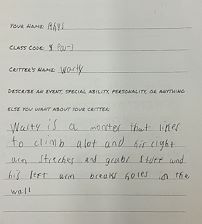 YOUR NAME: Rhys
CLASS CODE:
CRITTER'S NAME: Warty
DESCRIBE AN EVENT, SPECIAL ABILITY, PERSONALITY, OR ANYTHING
ELSE YOU WANT ABOUT YOUR CRITTER:
Warty is a monster that likes
to climb alot and his right
arm streches and grabs stuff and
his left arm breaks holes in the
wall